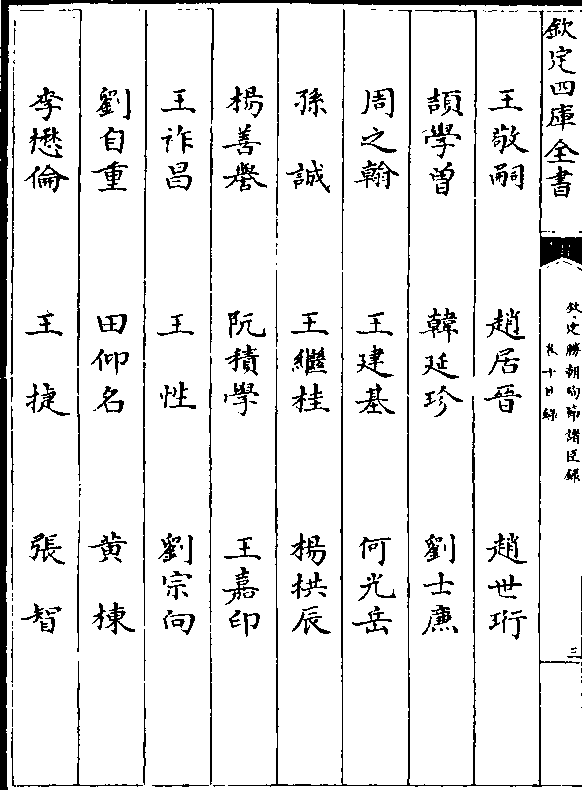 欽定四庫全書
欽定勝朝殉節諸臣錄
卷十目錄
三
王敬嗣　趙居晉　趙世珩
頡學曾　韓延珍　劉士廉
周之翰　王建基　何光岳
孫誠　王繼桂　楊栱辰
楊善譽　阮積學　王嘉印
王祚昌　王性　劉宗向
劉自重　田仰名　黄棟
李懋倫　王捷　張智